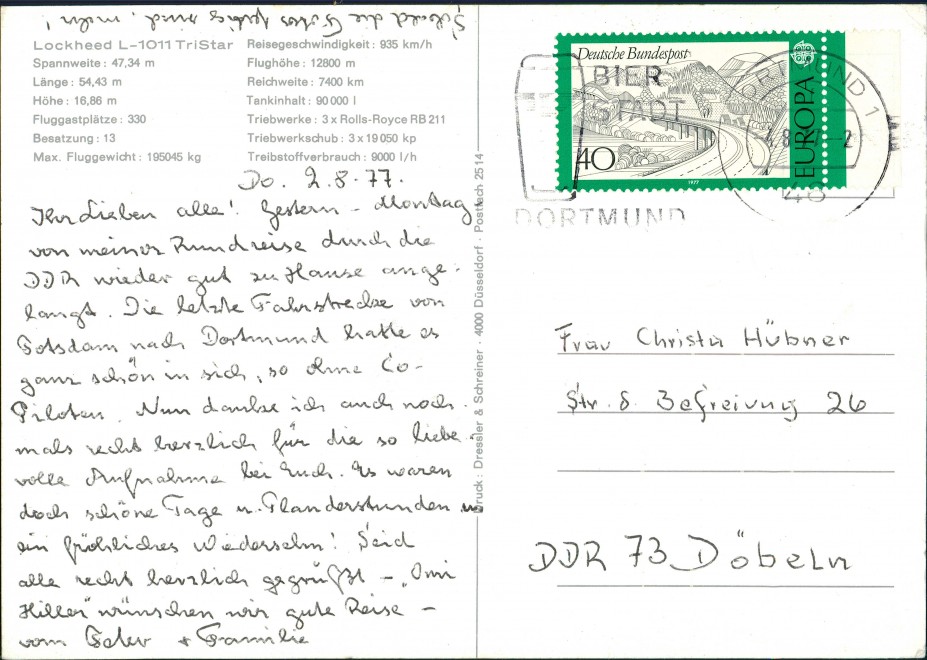 Sobald die Fotos fertig sind, mehr!
Lockheed L-1011 TriStar
Spannweite: 47,34 m
Länge: 54,43 m
Höhe: 16,86 m
Fluggastplätze: 330
Besatzung: 13
Max. Fluggewicht: 195045 kg
Reisegeschwindigkeit: 935 km/h
Flughöhe: 12800 m
Reichweite: 7400 km
Tankinhalt: 90000 l
Triebwerke: 3 x Rolls-Royce RB 211
Triebwerkschub: 3 x 19050 kp
Treibstoffverbrauch: 9000 l/h
Do. 2.8.77.
Ihr Lieben alle! Gestern - Montag
von meiner Rundreise durch die
DDR wieder gut zu Hause ange-
langt. Die letzte Fahrstrecke von
Potsdam nach Dortmund hatte es
ganz schön in sich, so ohne Co-
Piloten. Nun danke ich auch noch-
mals recht herzlich für die so liebe-
volle Aufnahme bei Euch. Es waren
doch schöne Tage u. Plauderstunden u
ein fröhliches Wiedersehn! Seid
alle recht herzlich gegrüßt - "Omi
Hiller" wünschen wir gute Reise -
vom Peter + Familie
Druck: Dressler & Schreiner · 4000 Düsseldorf · Postfach 2514
Deutsche Bundespost
40
1977
EUROPA
BIER
STADT
DORTMUND
DORTMUND 1
46
Frau Christa Hübner
Str. d. Befreiung 26
DDR 73 Döbeln